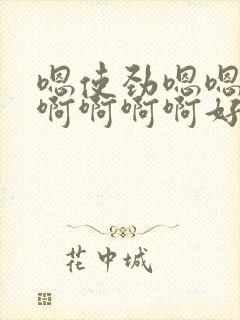 嗯使劲嗯嗯
啊啊啊啊好
花中城